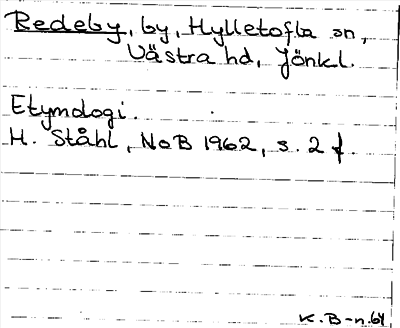 Redeby, by, Hylletofta sn,
Västra hd, Jönkl.
Etymologi.
H. Ståhl, NoB 1962, s. 2 f.
K. B-n. 64